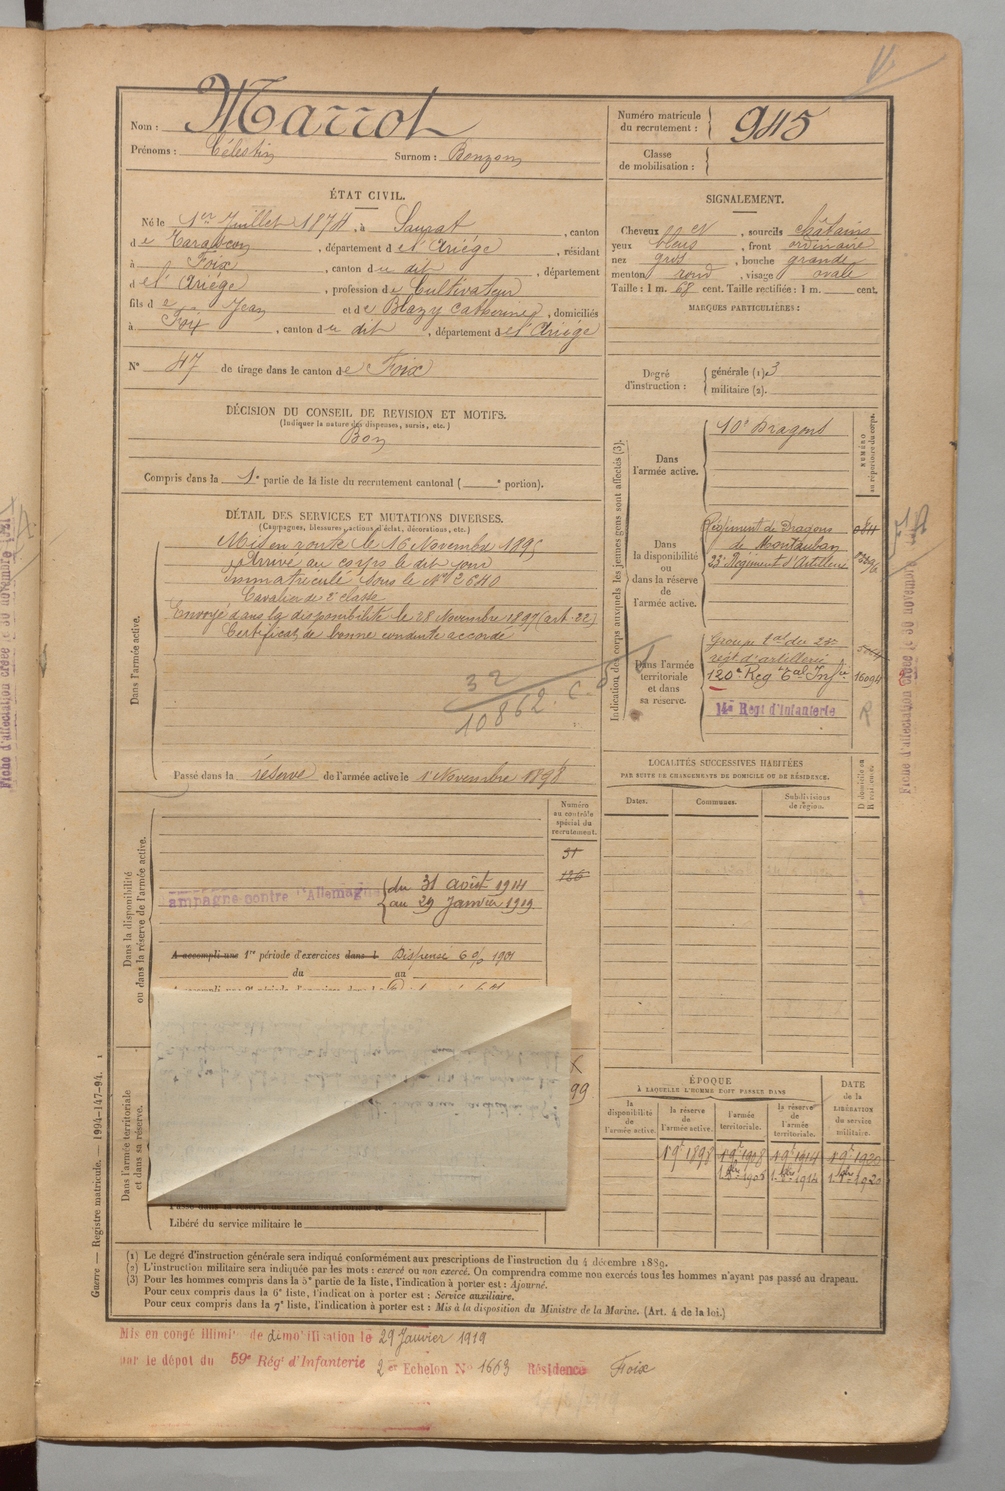 Nom : Marrot
Prénoms : Célestin Surnom : Bonzom
Numéro matricule du recrutement : 945
Classe de mobilisation :
ÉTAT CIVIL.
Né le 1er Juillet 1874, à Saurat, canton
de Tarascon, département de l'Ariége, résidant
à Foix, canton du dit, département
de l'Ariége, profession de Cultivateur
fils de Jean et de Blazy Catherine, domiciliés
à Foix, canton du dit, département de l'Ariége
N° 47 de tirage dans le canton de Foix
SIGNALEMENT.
Cheveux et, sourcils châtains
yeux bleus, front ordinaire
nez gros, bouche grande
menton rond, visage ovale
Taille : 1 m. 68 cent. Taille rectifiée : 1 m. cent.
MARQUES PARTICULIÈRES :
Degré d'instruction : générale (1) 3
militaire (2).
DÉCISION DU CONSEIL DE REVISION ET MOTIFS.
(Indiquer la nature des dispenses, sursis, etc.)
Bon
Compris dans la 1e partie de la liste du recrutement cantonal ( e portion).
DÉTAIL DES SERVICES ET MUTATIONS DIVERSES.
(Campagnes, blessures, actions d'éclat, décorations, etc.)
Dans l'armée active.
Mis en route le 16 Novembre 1895
Arrivé au corps le dit jour
Immatriculé sous le N° 2640
Cavalier de 2e classe
Envoyé dans la disponibilité le 28 Novembre 1897 (art. 22)
Certificat de bonne conduite accordé
32
10862
Passé dans la réserve de l'armée active le 1 Novembre 1898
Indication des corps auxquels les jeunes gens sont affectés (3).
NUMÉRO au répertoire du corps.
Dans l'armée active.
10e Dragons
Dans la disponibilité ou dans la réserve de l'armée active.
Régiment de Dragons
de Montauban
23e Régiment d'Artillerie
Dans l'armée territoriale et dans sa réserve.
Groupe tal du 23e
régt d'artillerie
120e Reg tal Infie 16094
14e Régt d'Infanterie
LOCALITÉS SUCCESSIVES HABITÉES
PAR SUITE DE CHANGEMENTS DE DOMICILE OU DE RÉSIDENCE.
Dates. Communes. Subdivisions de région. D domicile ou R résidence
Dans la disponibilité ou dans la réserve de l'armée active.
Numéro au contrôle spécial du recrutement.
31
126
ampagne contre l'Allemagne
du 31 août 1914
au 29 Janvier 1919
A accompli une 1re période d'exercices dans l Dispensé 1901
du au
99
Dans l'armée territoriale et dans sa réserve.
Libéré du service militaire le
ÉPOQUE
À LAQUELLE L'HOMME DOIT PASSER DANS
la disponibilité de l'armée active.
la réserve de l'armée active.
l'armée territoriale.
la réserve de l'armée territoriale.
DATE de la LIBÉRATION du service militaire.
1 9e 1898 1 9e 1908 1 9e 1914 1 9e 1920
(1) Le degré d'instruction générale sera indiqué conformément aux prescriptions de l'instruction du 4 décembre 1889.
(2) L'instruction militaire sera indiquée par les mots : exercé ou non exercé. On comprendra comme non exercés tous les hommes n'ayant pas passé au drapeau.
(3) Pour les hommes compris dans la 5e partie de la liste, l'indication à porter est : Ajourné.
Pour ceux compris dans la 6e liste, l'indication à porter est : Service auxiliaire.
Pour ceux compris dans la 7e liste, l'indication à porter est : Mis à la disposition du Ministre de la Marine. (Art. 4 de la loi.)
Guerre — Registre matricule. — 1994-147-94.
Mis en congé illimi de démobilisation le 29 Janvier 1919
par le dépot du 59e Régt d'Infanterie 2 er Echelon N° 1663 Résidence Foix
Fiche d'affectation créée le 30 novembre 1921